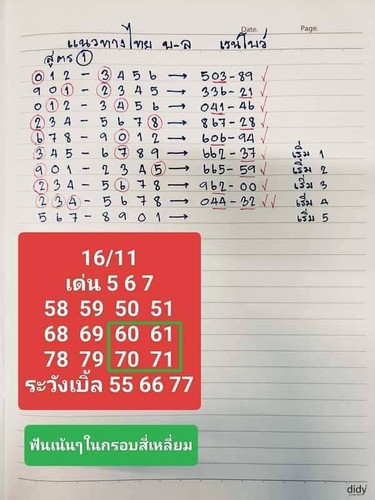 Date. Page.
แนวทางไทย บ-ล เรนโบว์
สูตร 1
012 - 3456 → 503-89 ✓
901 - 2345 336-21 ✓
012 - 3456 → 041-46 ✓
234 - 5678 → 867-28 ✓
678 - 9012 → 606-94 ✓
345 - 6789 → 662-37 ✓ เริ่ม 1
901 - 2345 → 665-59 ✓ เริ่ม 2
234 - 5678 → 962-00 ✓ เริ่ม 3
234 - 5678 → 044-32 ✓✓ เริ่ม 4
567 - 8901 → เริ่ม 5
16/11
เด่น 5 6 7
58 59 50 51
68 69 60 61
78 79 70 71
ระวังเบิ้ล 55 66 77
ฟันเน้นๆในกรอบสี่เหลี่ยม
didy